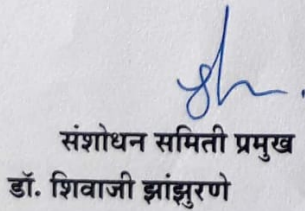 संशोधन समिती प्रमुख
डॉ. शिवाजी झांझुरणे